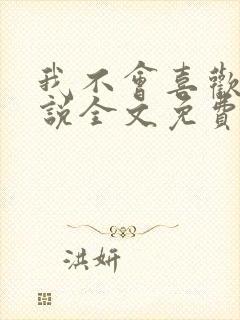 我不會喜歡
說全文免費
洪妍